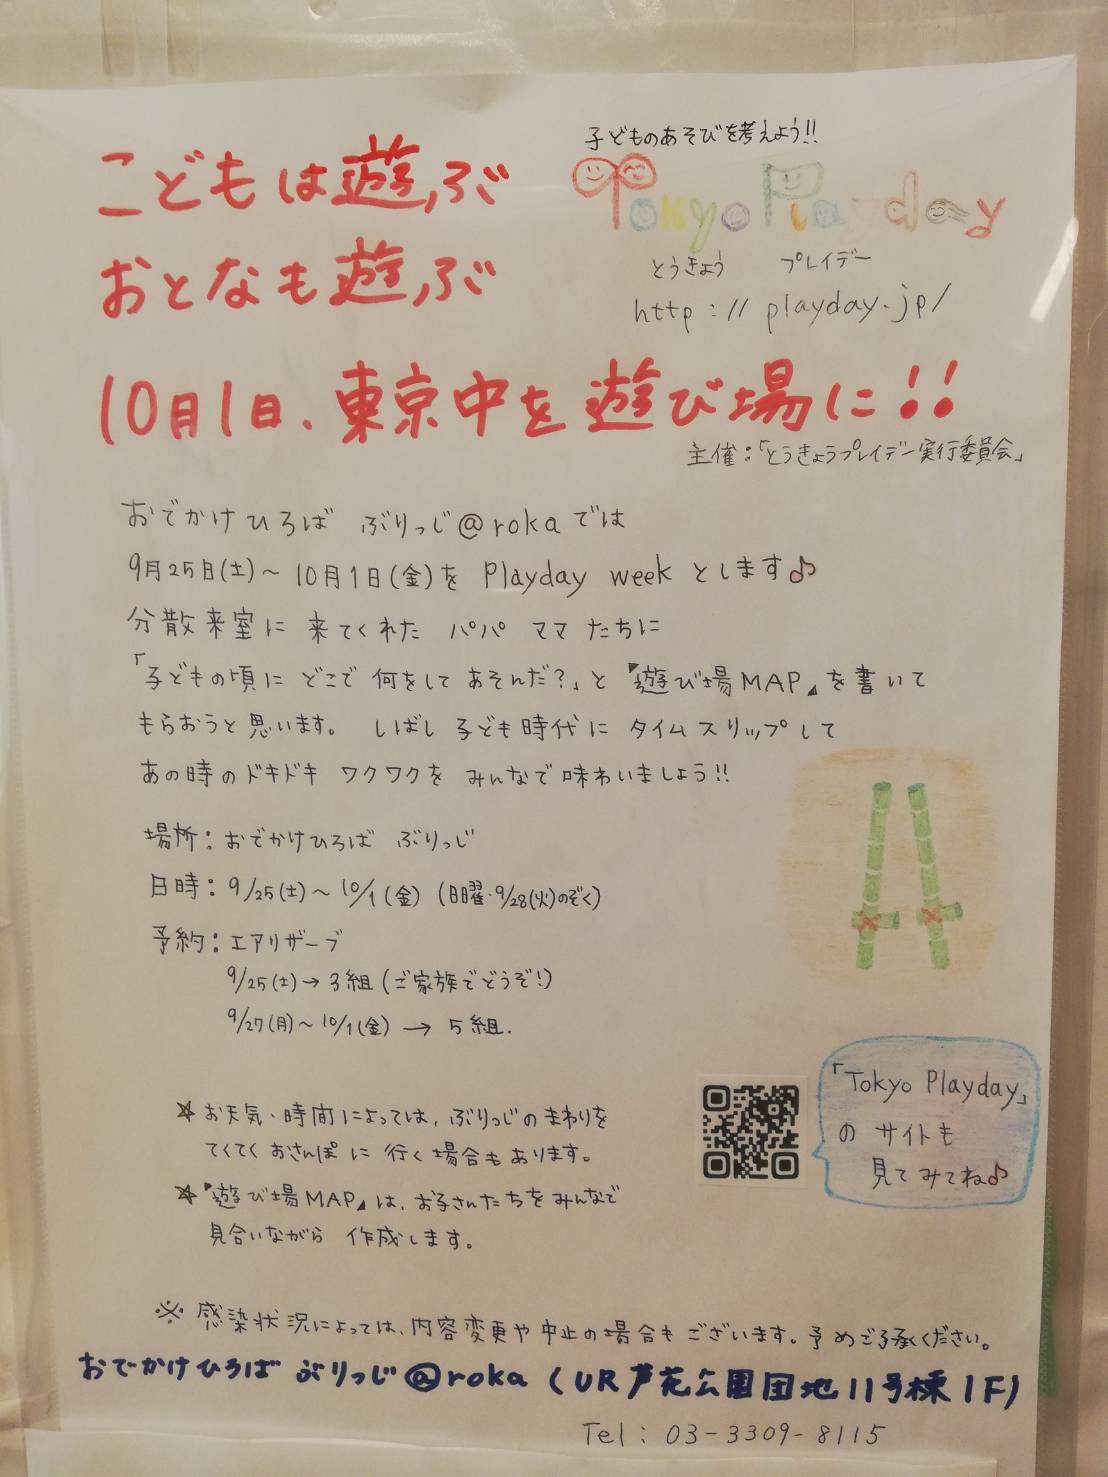 こどもは遊ぶ
おとなも遊ぶ
子どものあそびを考えよう!!
Tokyo Playday
とうきょう プレイデー
http://playday.jp/
10月1日、東京中を遊び場に!!
主催:「とうきょうプレイデー実行委員会」
おでかけひろば ぶりっじ@rokaでは
9月25日(土)～10月1日(金)を Playday week とします♪
分散来室に 来てくれた パパ ママ たちに
「子どもの頃に どこで 何をして あそんだ?」と『遊び場MAP』を書いて
もらおうと思います。 しばし 子ども時代に タイムスリップして
あの時のドキドキ ワクワクを みんなで味わいましょう!!
場所:おでかけひろば ぶりっじ
日時:9/25(土)～10/1(金)(日曜・9/28(火)のぞく)
予約:エアリザーブ
9/25(土)→3組(ご家族でどうぞ!)
9/27(月)～10/1(金)→5組.
☆お天気・時間によっては、ぶりっじのまわりを
てくてくおさんぽに行く場合もあります。
☆『遊び場MAP』は、お子さんたちをみんなで
見合いながら 作成します。
「Tokyo Playday」
の サイトも
見てみてね♪
※感染状況によっては、内容変更や中止の場合もございます。予めご了承ください。
おでかけひろば ぶりっじ@roka (UR芦花公園団地11号棟1F)
Tel:03-3309-8115